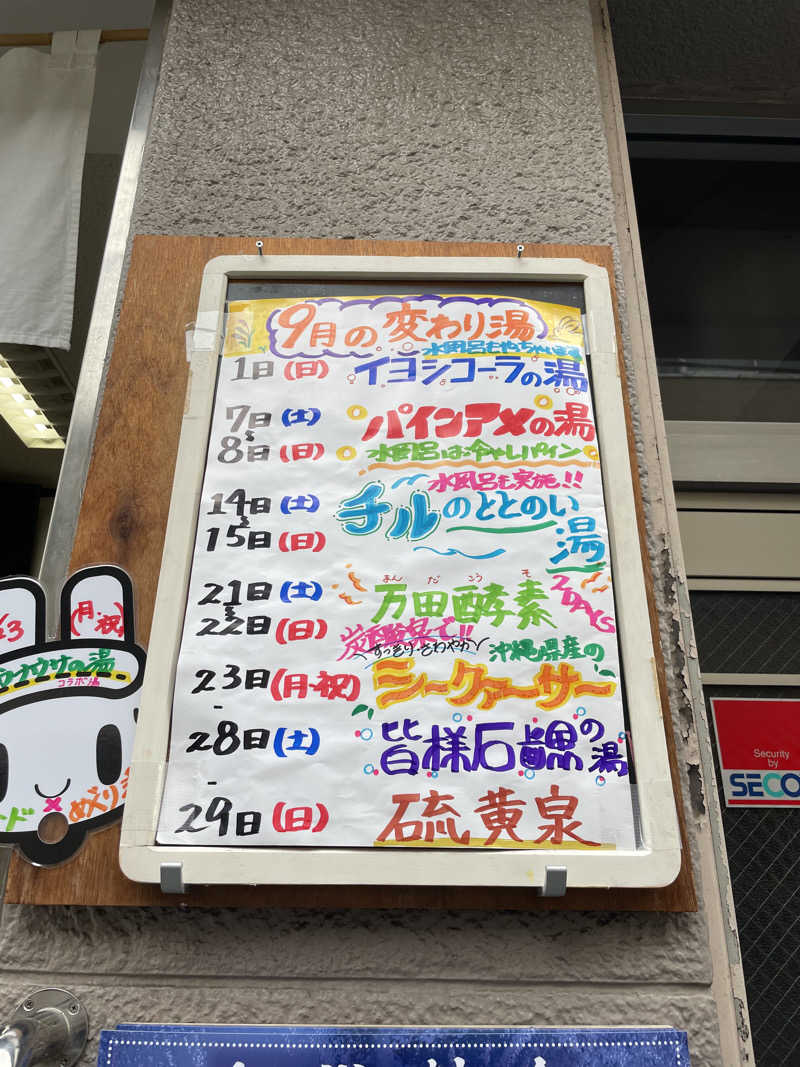 9月の変わり湯
水風呂もやっちゃいます
1日(日) イヨシコーラの湯
7日(土) パインアメの湯
8日(日) 水風呂は冷やしパイン
水風呂も実施!!
14日(土) チルのととのい
15日(日) 湯
21日(土) 万田酵素
まんだこうそ
2DAYS
22日(日)
炭酸泉で!!
すっきりさわやか
沖縄県産の
23日(月・祝) シークァーサー
28日(土) 皆様石鹸の湯
29日(日) 硫黄泉
(月・祝)
ウサウサの湯
コラボ湯
Security
by
SECO